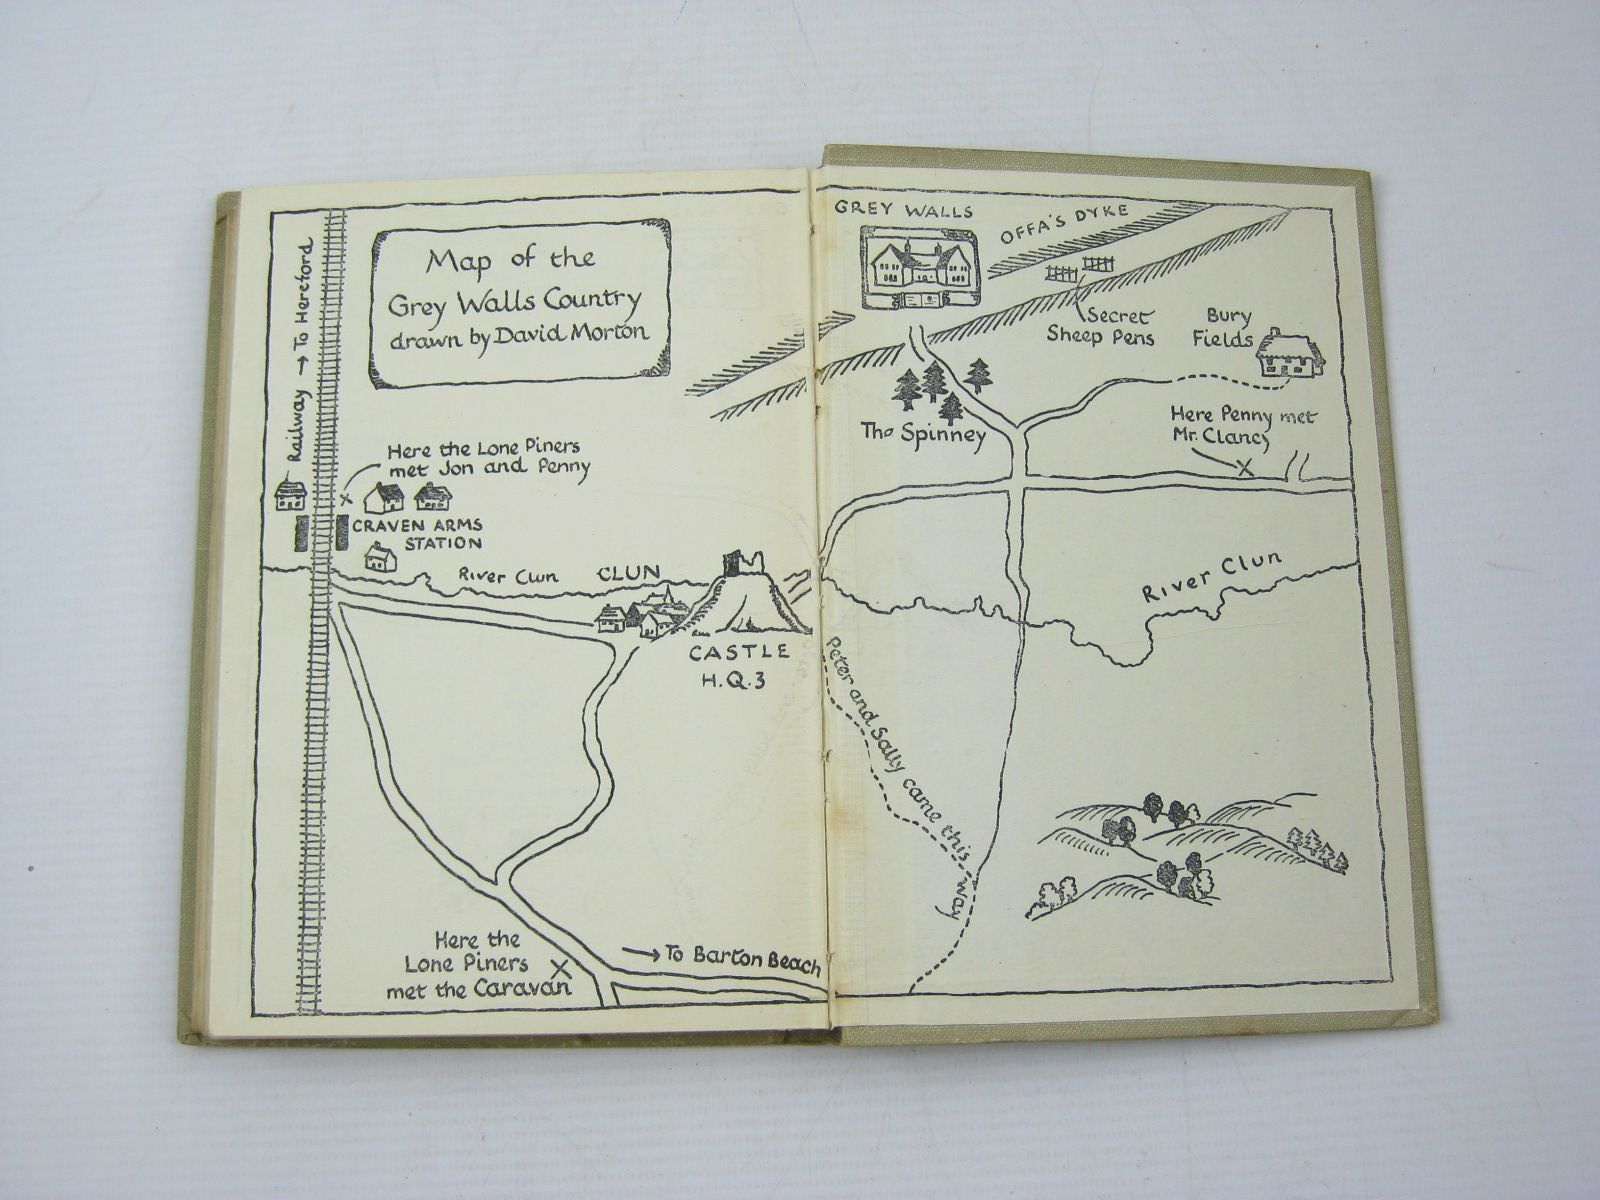 Map of the
Grey Walls Country
drawn by David Morton
Railway → To Hereford
Here the Lone Piners
met Jon and Penny
CRAVEN ARMS
STATION
River Clun
CLUN
CASTLE
H.Q.3
Here the
Lone Piners
met the Caravan
→ To Barton Beach
GREY WALLS
OFFA'S DYKE
Secret
Sheep Pens
Bury
Fields
The Spinney
Here Penny met
Mr. Clancy
River Clun
Peter and Sally came this way